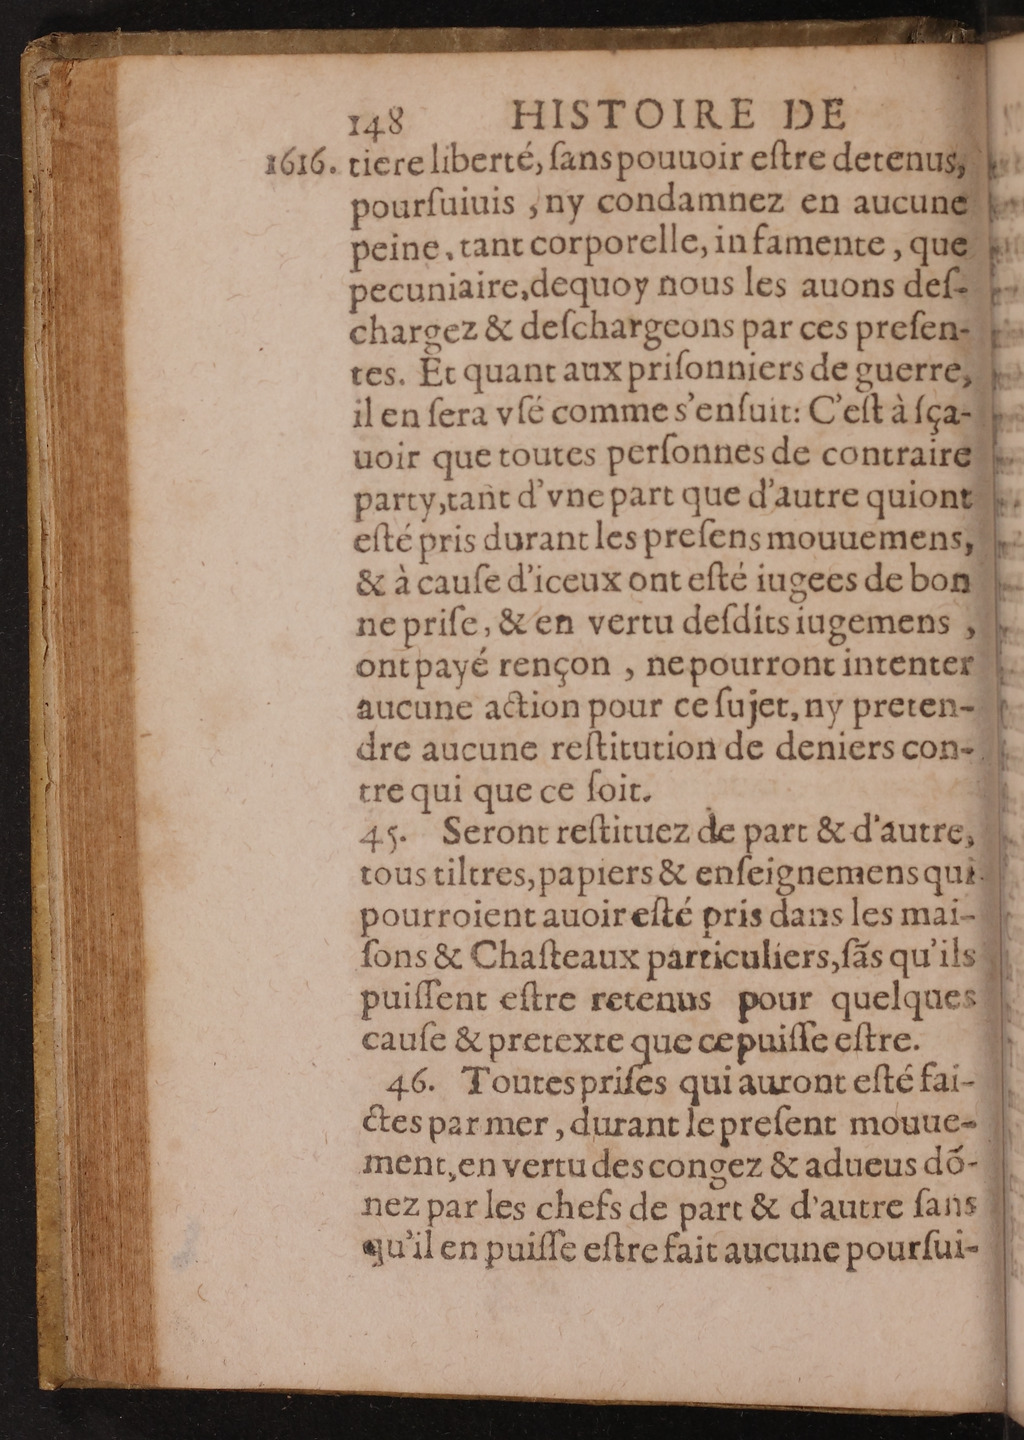 148 HISTOIRE DE
1616. tiere liberté, ſans pouuoir eſtre detenus,
pourſuiuis , ny condamnez en aucune
peine, tant corporelle, infamente , que
pecuniaire,dequoy nous les auons deſ-
chargez & deſchargeons par ces preſen-
tes. Et quant aux priſonniers de guerre,
il en ſera vſé comme s'enſuit: C'eſt à ſça-
uoir que toutes perſonnes de contraire
party,tant d'vne part que d'autre qui ont
eſté pris durant les preſens mouuemens,
& à cauſe d'iceux ont eſté iugees de bon
ne priſe, & en vertu deſdits iugemens ,
ont payé rençon , ne pourront intenter
aucune action pour ce ſujet, ny preten-
dre aucune reſtitution de deniers con-
tre qui que ce ſoit.
45. Seront reſtituez de part & d'autre,
tous tiltres, papiers & enſeignemens qui
pourroient auoir eſté pris dans les mai-
ſons & Chaſteaux particuliers,ſãs qu'ils
puiſſent eſtre retenus pour quelques
cauſe & pretexte que ce puiſſe eſtre.
46. Toutes priſes qui auront eſté fai-
ctes par mer , durant le preſent mouue-
ment,en vertu des congez & adueus dõ-
nez par les chefs de part & d'autre ſans
qu'il en puiſſe eſtre fait aucune pourſui-